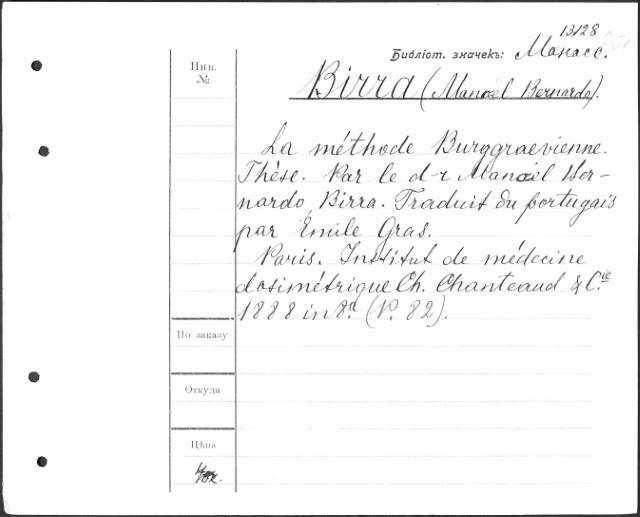 13128
Библіот. значекъ: Манасс.
Инв.
№
Birra (Manoel Bernardo).
La méthode Burggraevienne.
Thèse. Par le d-r Manoël Ber-
nardo Birra. Traduit du portugais
par Emile Gras.
Paris. Institut de médecine
dosimétrique Ch. Chanteaud & C.ie
1888 in 8º (P. 82).
По заказу
Откуда
Цѣна